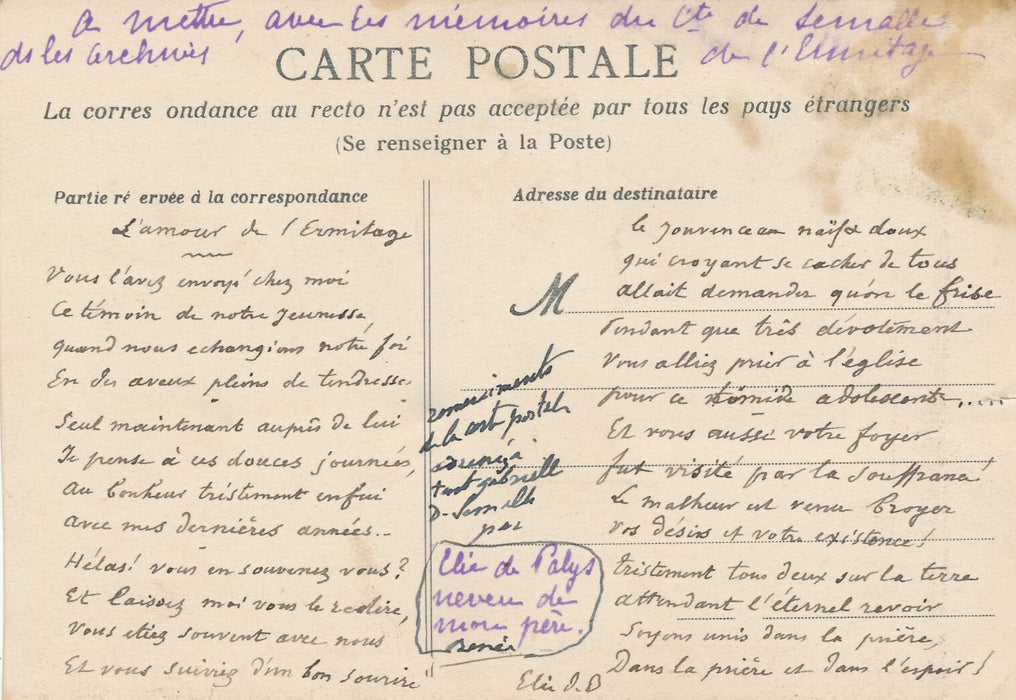 a mettre, avec les mémoires du Cte de Semallé
ds les archives de l'Ermitage
CARTE POSTALE
La corres ondance au recto n'est pas acceptée par tous les pays étrangers
(Se renseigner à la Poste)
Partie ré ervée à la correspondance
L'amour de l'Ermitage
Vous l'avez envoyé chez moi
Ce témoin de notre jeunesse
quand nous echangions notre foi
En des aveux pleins de tendresse
Seul maintenant auprès de lui
Je pense à ces douces journées,
Au bonheur tristement enfui
avec mes dernières années..
Hélas! vous en souvenez vous?
Et laissez moi vous le redire,
Vous etiez souvent avec nous
Et vous suiviez d'un bon sourire
Adresse du destinataire
M
le jouvenceau naïf & doux
qui croyant se cacher de tous
allait demander qu'on le frise
Pendant que très dévotement
Vous alliez prier à l'église
pour ce timide adolescent.....
Et vous aussi votre foyer
fut visité par la souffrance!
Le malheur est venu broyer
vos désirs et votre existence!
Tristement tous deux sur la terre
attendant l'éternel revoir
Soyons unis dans la prière,
Dans la prière et dans l'espoir!
Elie d. B
remerciments
de la carte postale
adressée à
tante gabrielle
D. Semallé
par
Elie de Palys
neveu de
mon père.
René